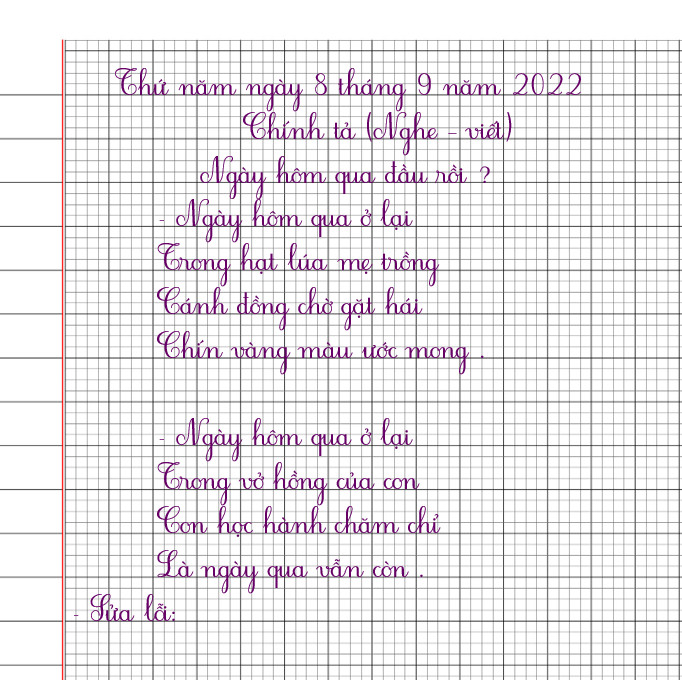 Thứ năm ngày 8 tháng 9 năm 2022
Chính tả (Nghe - viết)
Ngày hôm qua đâu rồi ?
- Ngày hôm qua ở lại
Trong hạt lúa mẹ trồng
Cánh đồng chờ gặt hái
Chín vàng màu ước mong .
- Ngày hôm qua ở lại
Trong vở hồng của con
Con học hành chăm chỉ
Là ngày qua vẫn còn .
- Sửa lỗi: